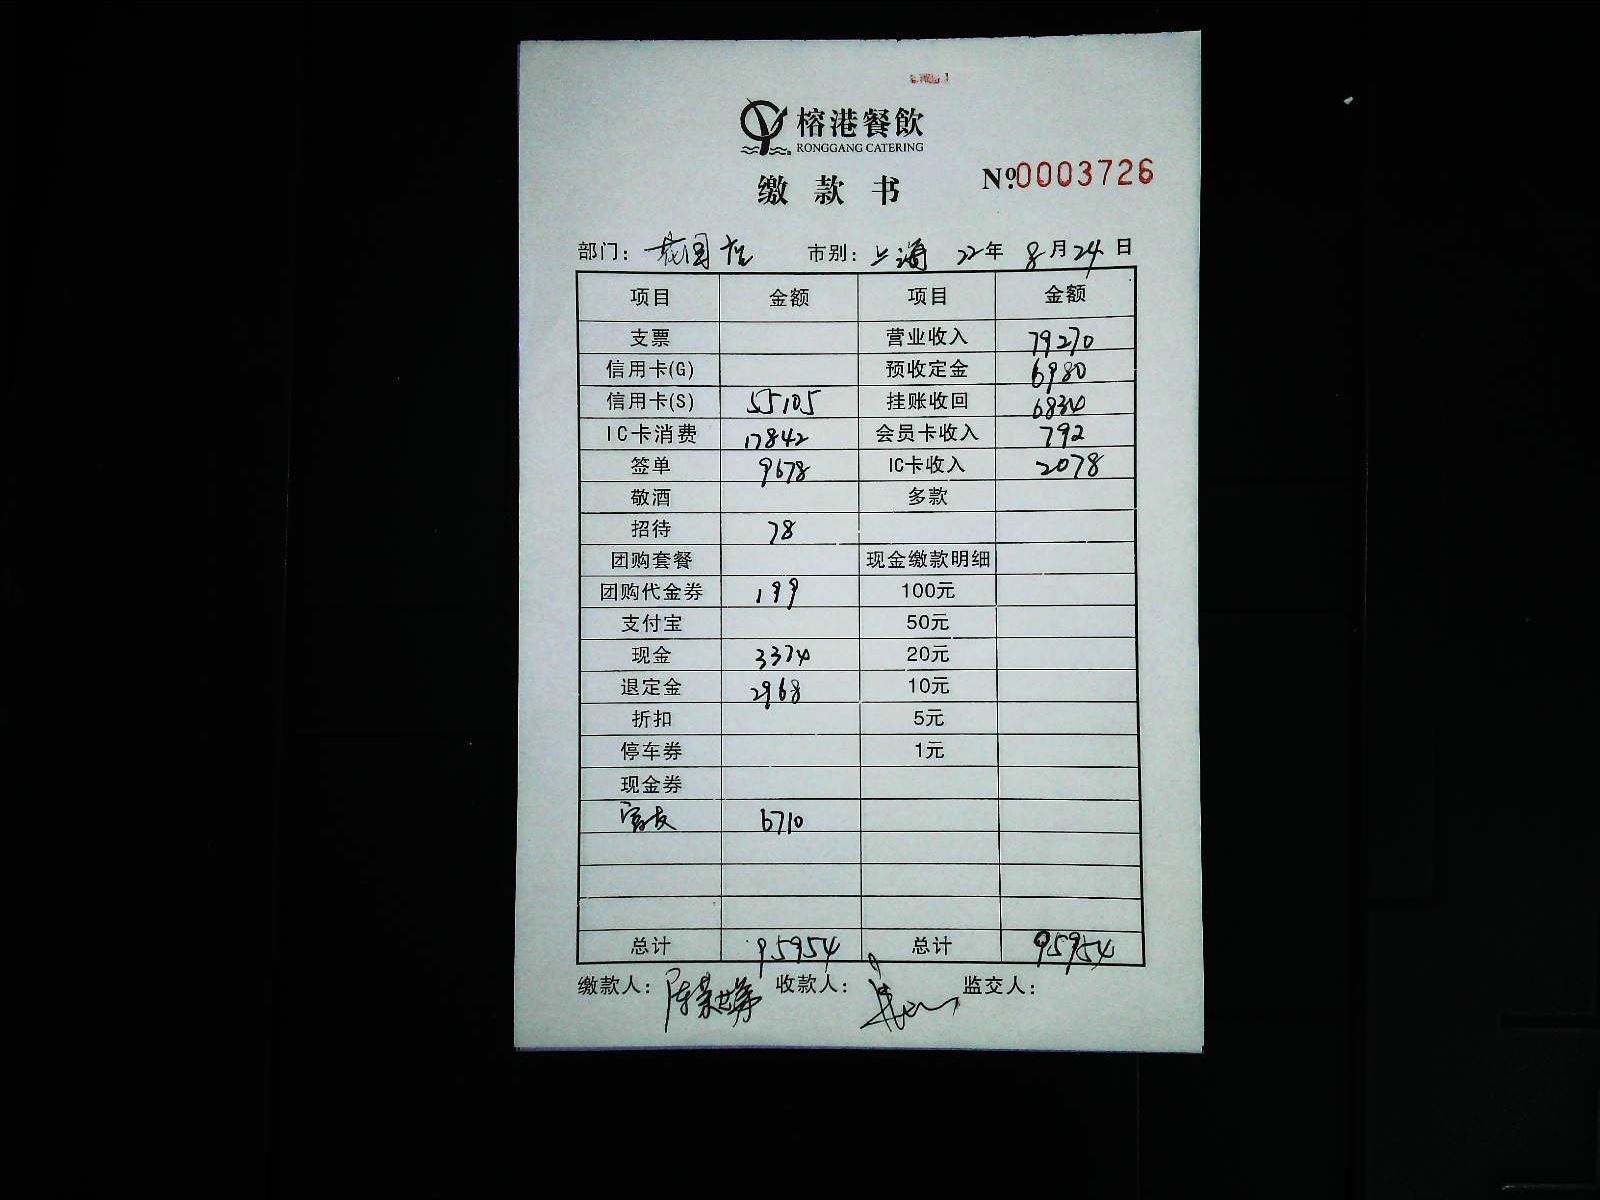 榕港餐飲
RONGGANG CATERING
缴款书
№ 0003726
部门: 花园店 市别: 上海 22年 8月24日
项目 金额 项目 金额
支票 营业收入 79270
信用卡(G) 预收定金 6980
信用卡(S) 55105 挂账收回 6834
IC卡消费 17842 会员卡收入 792
签单 9678 IC卡收入 2078
敬酒 多款
招待 78
团购套餐 现金缴款明细
团购代金券 199 100元
支付宝 50元
现金 3374 20元
退定金 2968 10元
折扣 5元
停车券 1元
现金券
富友 6710
总计 95954 总计 95954
缴款人: 收款人: 监交人: